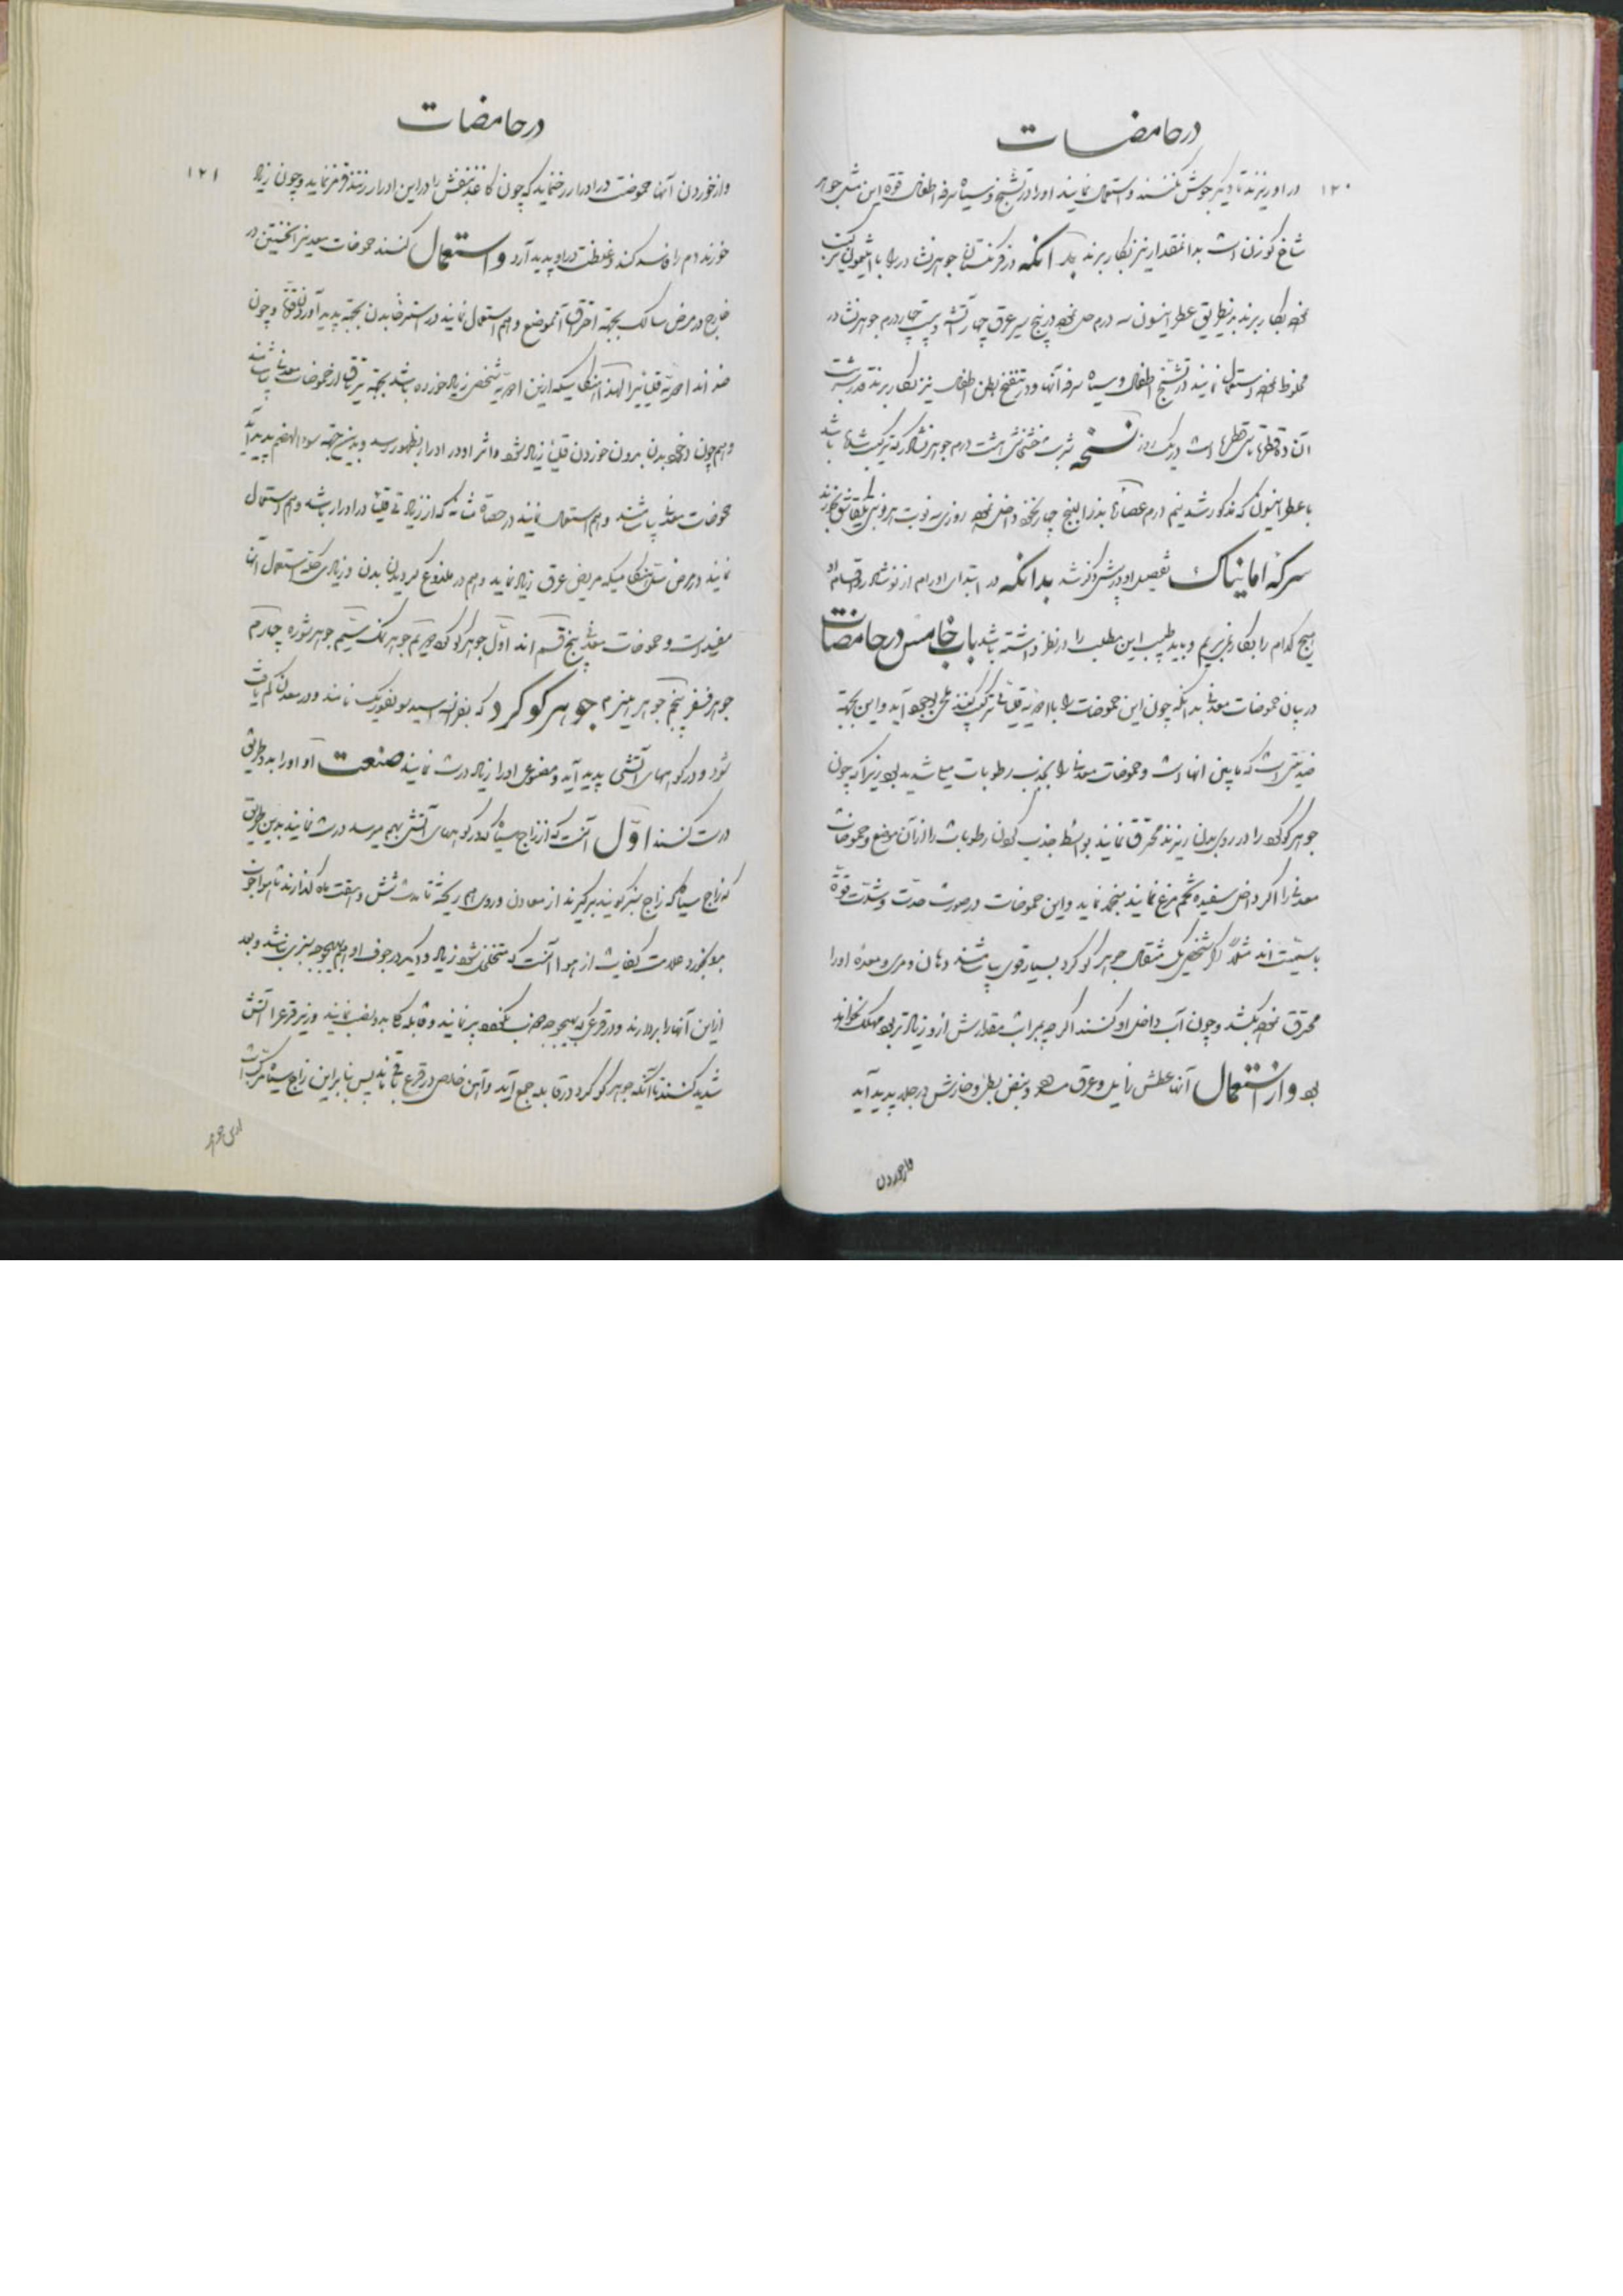 در حامضات
۱۲۰
در او ریزند تا دیگر جوش نکنند و استعمال نمایند او را در تشنج و سیاه سرفه اطفال قوة این مثل جوهر
شاخ گوزن است بدانمقدار نیز بکار برند بدانکه در فرنگستان جوهر نشادر را با
نموده بکار برند بدینطریق عطر انیسون سه درم حل نموده در پنج سیر عرق چهار آتشه و بیست چهار درم جوهر نشادر
مخلوط نموده استعمال نمایند در تشنج اطفال و سیاه سرفه آنها و در تنفخ بطن اطفال نیز بکار برند قدر شربت
آن ده قطره تا سی قطره است در یک روز نسخه شربت خشخاش هشت درم جوهر نشادر که ترکیب شده باشد
با عطر انیسون که مذکور شد نیم درم عصاره بذرالبنج چهار نخود داخل نموده روزی سه نوبت هر نوبتی یکقاشق بخورند
سرکه امانیاک تفصیل او در پیش ذکر شد بدانکه در ابتدای اورام از نوشادر و اقسام او
هیچ کدام را بکار نمیبریم و باید طبیب این مطلب را در نظر داشته باشد باب خامس در حامضات
در بیان حموضات معدنی بدانکه چون این حموضات را با ادویه قلیائی ترکیب کنند ملحی بوجود آید و این بجهة
ضدیتی است که مابین آنها است و حموضات معدنی را بجذب رطوبات میل شدید بود زیرا که چون
جوهر گوگرد را در روی بدن ریزند محترق نمایند بواسطه جذب کردن رطوبات را از آن موضع و حموضات
معدنی را اگر داخل سفیده تخم مرغ نمایند منجمد نماید و این حموضات در صورت حدّت و شدّت قوّة
با سمیّت اند مثلا اگر شخصی یک مثقال جوهر گوگرد بسیار قوی بیاشامد دهان و مری و معده او را
محترق نموده بکشد و چون آب داخل او کنند اگر چه بمراتب مقدارش از او زیادتر بود مهلک نخواهد
بود و از استعمال آنها عطش زایل و عرق و قبض بطن و خارش در جلد پدید آید
و از خوردن
در حامضات
۱۲۱
و از خوردن آنها حموضت در ادرار رخ نماید که چون کاغذ بنفش را در این ادرار زنند قرمز نماید و چون زیاد
خورند دم را فاسد کند و غلظت در او پدید آرد و استعمال کنند حموضات معدنی را نخستین در
خارج در مرض سالک بجهة احتراق آنموضع و هم استعمال نمایند در استرخا بدن بجهة پدید آوردن و چون
ضد اند ادویه قلیائی را لهذا هنگامیکه از این ادویه شخص زیاد خورده باشد بجهة تریاق از حموضات معدنی بیاشامند
و هم چون در خود بدن بدون خوردن قلیا زیاد شود و اثر او در ادرار بظهور رسد و بدین جهة سوء الهضم پدید آید
حموضات معدنی بیاشامند و هم استعمال نمایند در حصاة مثانه که از زیادتی قلیا در ادرار باشد و هم استعمال
نمایند در مرض سل هنگامیکه مریض عرق زیاد نماید و هم در ملذوع گردیدن بدن و زیادی حکّه استعمال آن
مفید است و حموضات معدنی پنج قسم اند اول جوهر گوگرد دویم جوهر نمک سیّم جوهر شوره چهارم
جوهر فسفر پنجم جوهر جوهر گوگرد که بفرانسه اسید سولفوریک نامند و در معدن کم یافت
شود و در کوههای آتشی پدید آید و مصنوعی او را زیاد درست نمایند صنعت او او را بدو طریق
درست کنند اوّل آنست که از زاج سیاه که در کوههای آتشی بهم میرسد درست نمایند بدین طریق
که زاج سیاه که زاج سبز گویند برگیرند از معادن و روی هم ریخته تا مدت شش و هفت ماه گذارند تا هوا خوب
باو بخورد علامت کفایت از هوا آنست که متخلخل شود زیاد و دیگر در جوف او هم بهیچوجه سبزی نباشد و بعد
از این آنها را بردارند و در قرعی که بهیچوجه جذب نکند پر نمایند و قابله که باید و نصب نمایند و زیر قرع را آتش
شدید کنند تا آنکه جوهر گوگرد در قابله جمع آید و آهن خالص در قرع باقی ماند پس بنابراین زاج سیاه مرکب است